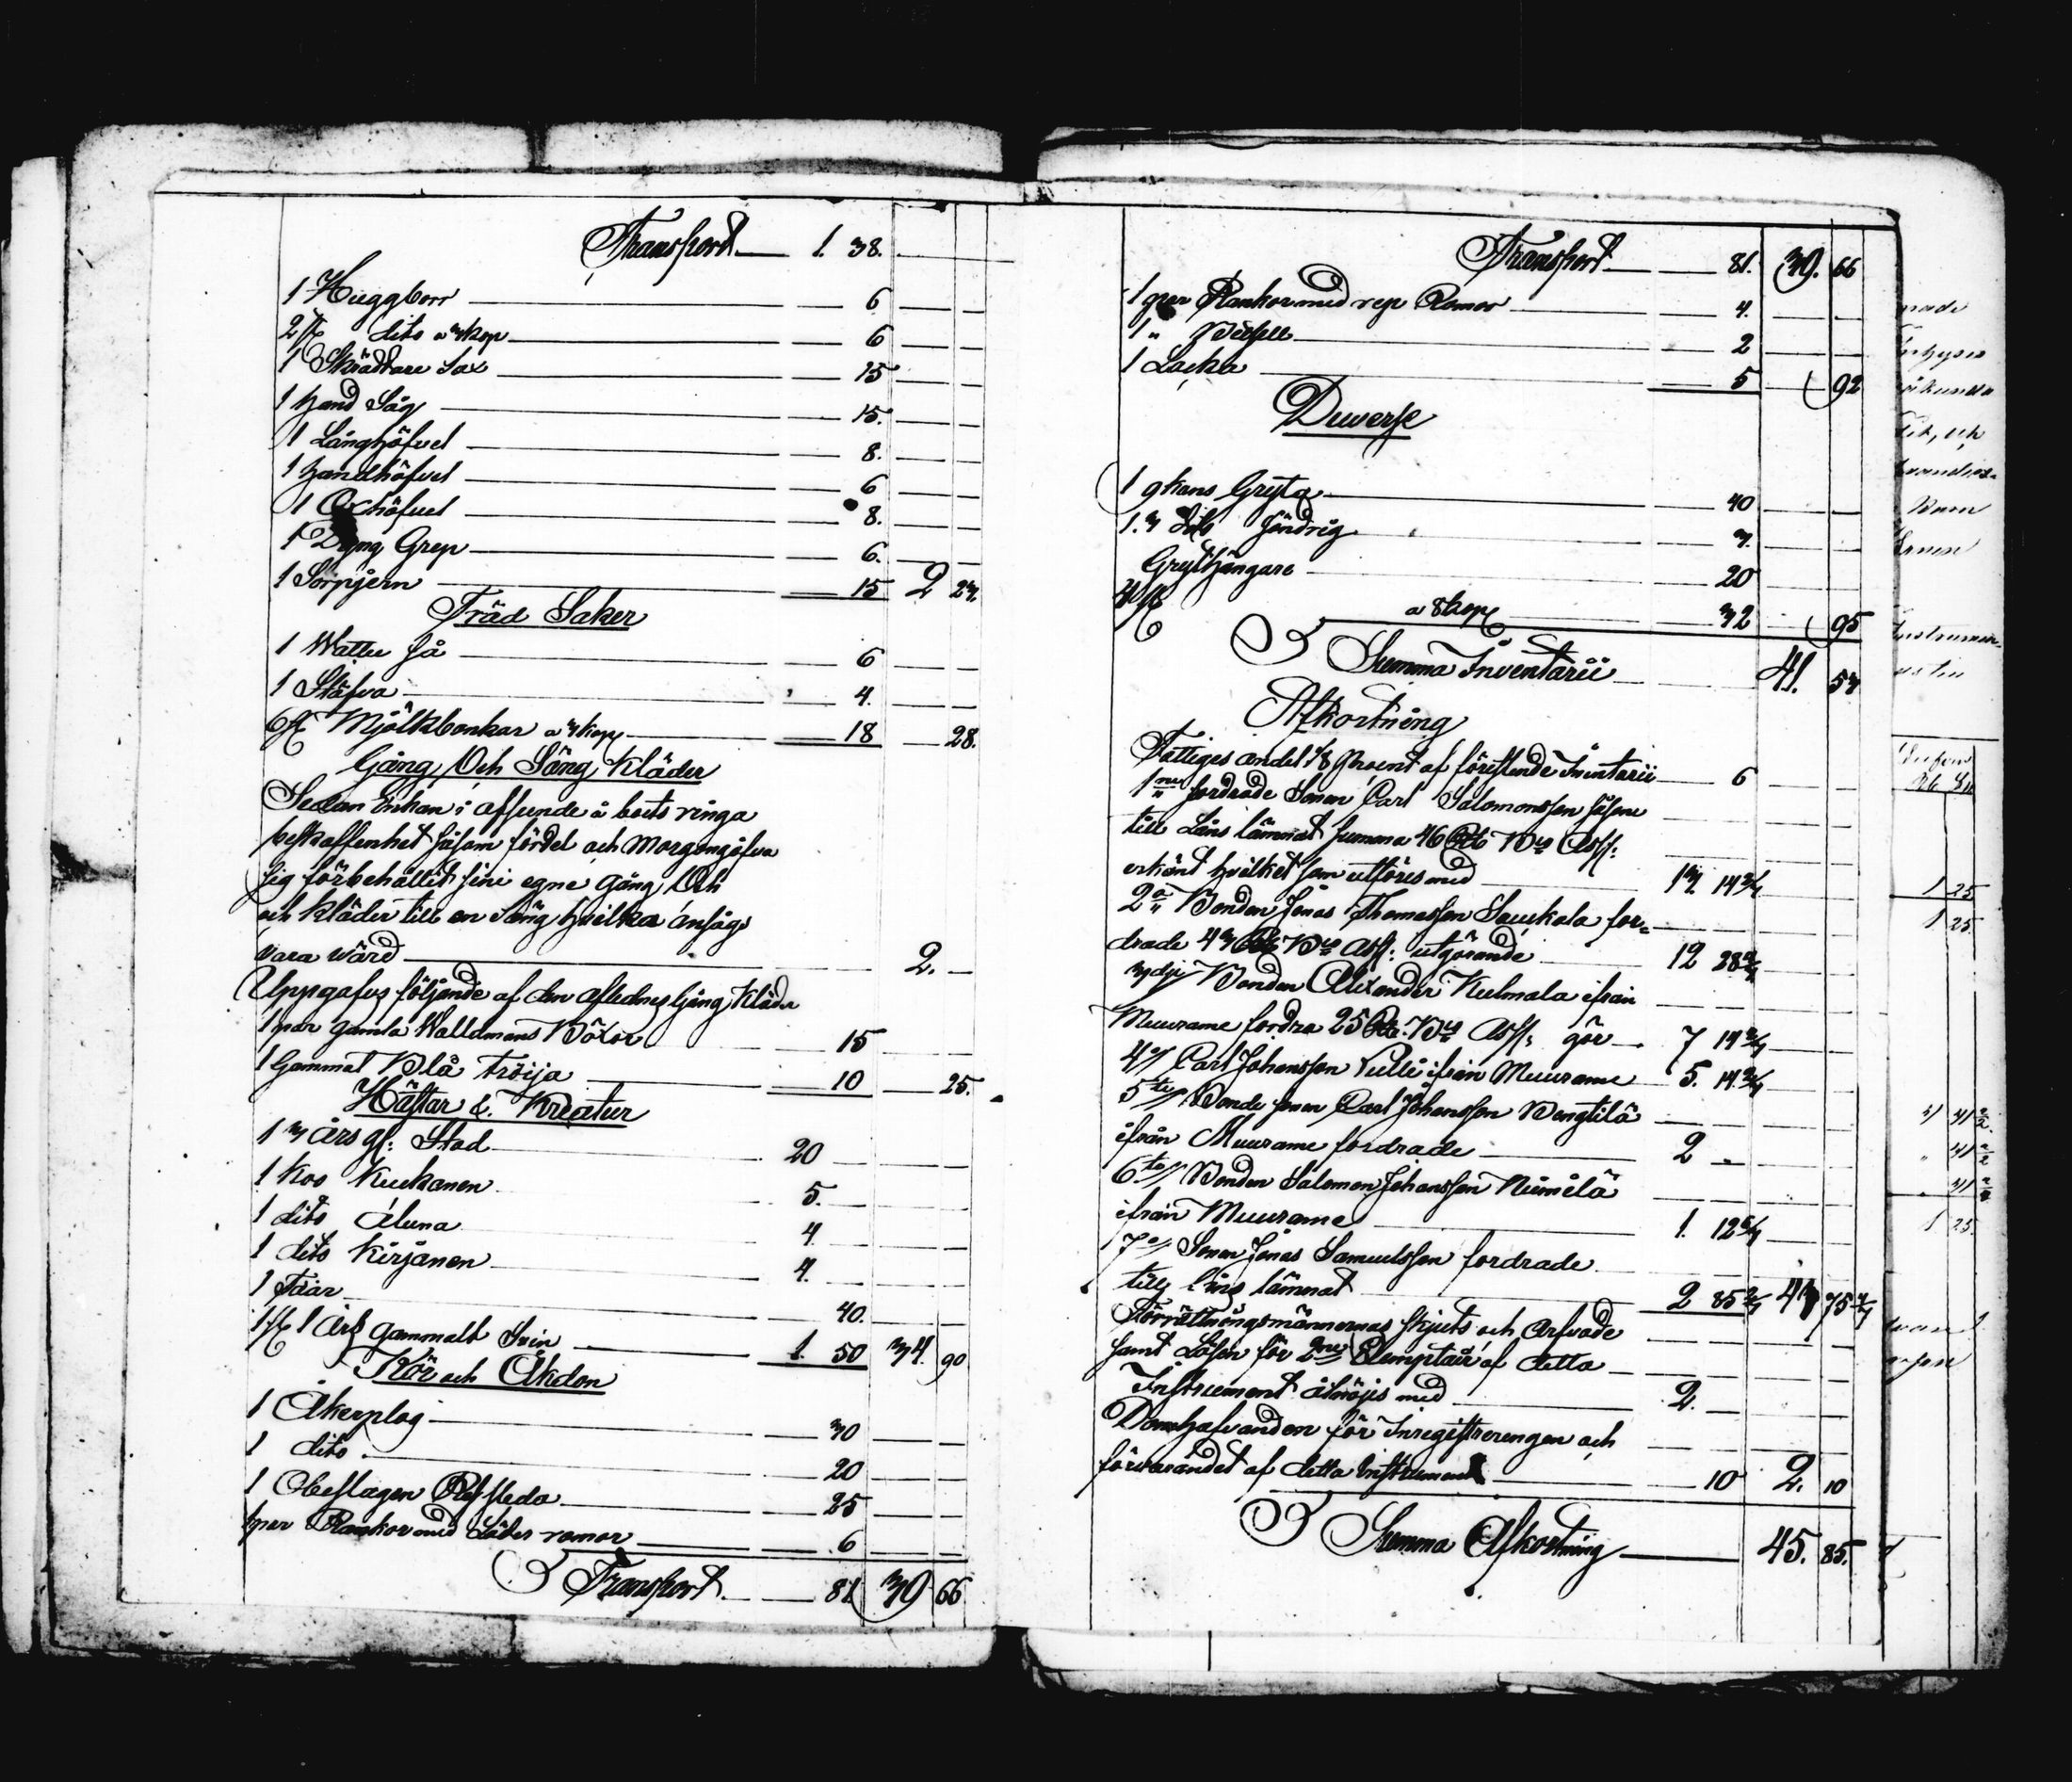 Transport 1. 38.
1 Huggborr 6
2 st dito a 3 kop 6
1 Skräddare Sax 15
1 hand Såg 15.
1 Långhöfvel 8.
1 handhöfvel 6
1 Oxhöfvel 8.
1 Dyng Grep 6.
1 Sörpjern 15 2 23.
Träd Saker
1 Watten så 6
1 Stäfva 4.
6 st Mjölkbonkar a 3 kop 18 28.
Gång Och Säng Kläder
Sedan Enkan i afseende å boets ringa
beskaffenhet såsom fördel och Morgongåfva
sig förbehållit sini egne Gång Och
och Kläder till en Säng hvilka ansågs
vara wärd 2.
Uppgafvs följande af den aflednes Gång Kläder
1 par gamla Walldmans Böxor 15
1 Gammal Blå tröija 10 25.
Hästar & Kreatur
1 3 års gl: Stod 20
1 Koo Kuckanen 5.
1 dito Aluna 4
1 dito Kirjanen 4.
1 Faar 40.
1 st 1 Års gammalt Svin 1. 50 34. 90
Kör och Åkdon
1 Åkerplog 30
1 dito 20
1 Obeslagen Ressleda 25
1 par Rankor med Läder romor 6
Transport 81 39 66
Transport 81. 39. 66
1 par Rankor med rep Romor 4.
1 " 2
1 Lacka 5 92
Diverse
1 9 kans Gryta 40
1. 3 dito söndrig 3.
Grythängare 20
4 st a 8 kop 32 95
Summa Inventarii 41. 53
Afkortning
Fattiges andel 1/8 Procent af förestående Inventarii 6
1mo fordrade Sonen Carl Salomonsson såsom
till Låns lämnat summa 46 Rub Bco Ass:
erkänt hvilket som utföres med 13 14 2/7
2o Bonden Jonas Thomasson Saukala for-
drade 43 Rub Bco Ass: utgörande 12 28 4/7
3dje Bonden Alexander Kulmala ifrån
Muurame fordra 25 Rub. Bco Ass: gör 7 14 2/7
4o Carl Johansson Pulli ifrån Muurame 5. 14 2/7
5te Bonde sonen Carl Johansson Bengtilä
ifrån Muurame fordrade 2
6to Bonden Salomon Johansson Niimilä
ifrån Muurame 1. 12 6/7
7o Sonen Jonas Samuelsson fordrade
till låns lämnat 2 85 2/7 43 75 4/7
Förrättningsmännernas skjuts och Arfvode
samt Lösen för 2ne Exemplair af detta
Instrument åtnöjes med 2.
Domhafvanden för Inregistreringen och
förvarandet af detta Instrument 10 2. 10
Summa Afkortning 45. 85.